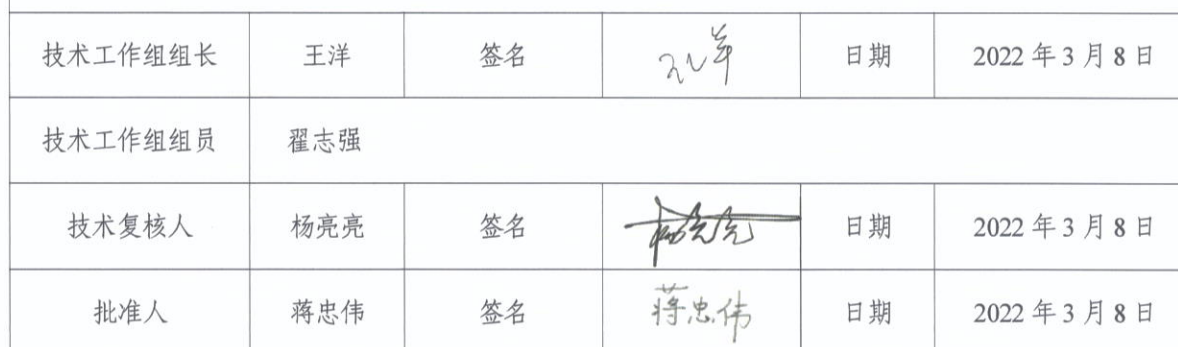 技术工作组组长 王洋 签名 王洋 日期 2022 年 3 月 8 日
技术工作组组员 翟志强
技术复核人 杨亮亮 签名 杨亮亮 日期 2022 年 3 月 8 日
批准人 蒋忠伟 签名 蒋忠伟 日期 2022 年 3 月 8 日